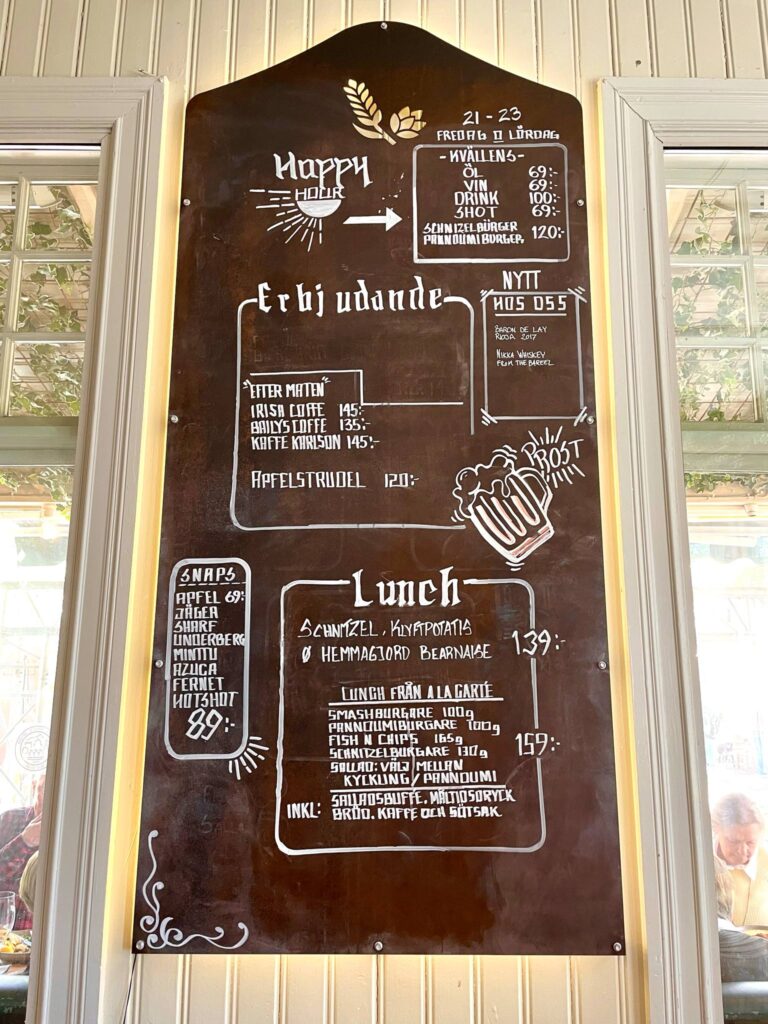 21 - 23
FREDAG O LÖRDAG
Happy
HOUR
- KVÄLLENS -
ÖL 69:-
VIN 69:-
DRINK 100:-
SHOT 69:-
SCHNITZELBÜRGER
PANNOUMIBURGER, 120:-
Erbjudande
NYTT
HOS OSS
BARON DE LAY
RIOJA 2017
NIKKA WHISKEY
FROM THE BARREL
"EFTER MATEN"
IRISH COFFE 145:-
BAILYS COFFE 135:-
KAFFE KARLSON 145:-
APFELSTRUDEL 120:-
PROST
SNAPS
APFEL 69:-
JÄGER
SHARF
UNDERBERG
MINTTU
AZUCA
FERNET
HOTSHOT
89:-
Lunch
SCHNITZEL, KLYFTPOTATIS
Ø HEMMAGJORD BEARNAISE 139:-
LUNCH FRÅN A LA CARTE
SMASHBURGARE 100g
PANNOUMIBURGARE 100g
FISH N CHIPS 165g
SCHNITZELBURGARE 130g 159:-
SALLAD: VÄLJ MELLAN
KYCKLING/PANNOUMI
INKL: SALLADSBUFFE, MÅLTIDSDRYCK
BRÖD, KAFFE OCH SÖTSAK